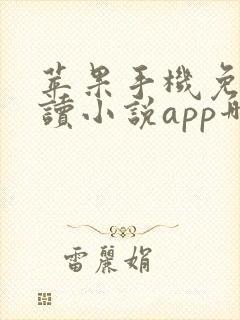 苹果手機免
讀小説app
雷麗娟